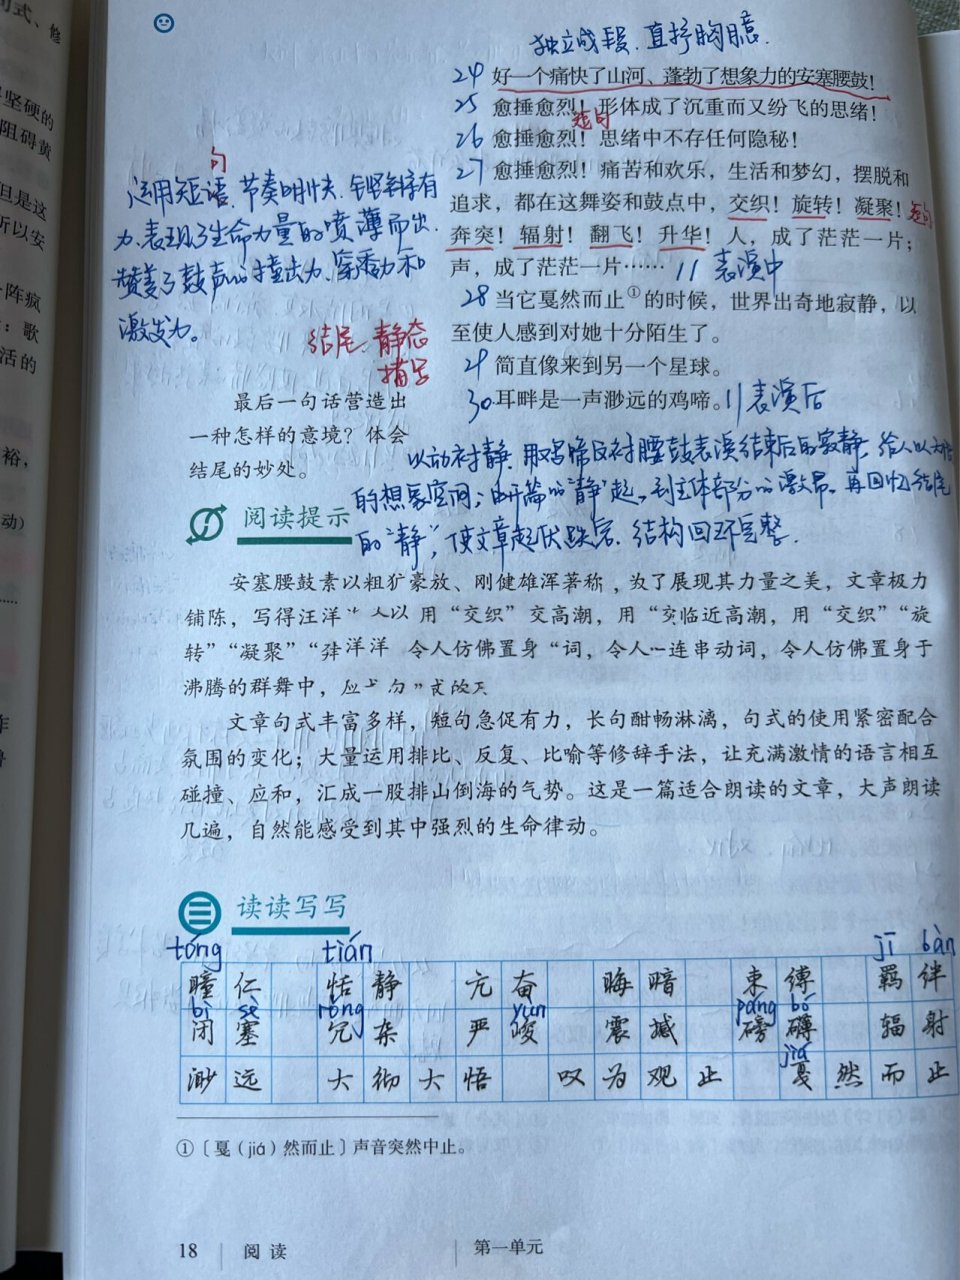 独立成段、直抒胸臆.
24 好一个痛快了山河、蓬勃了想象力的安塞腰鼓！
25 愈捶愈烈！形体成了沉重而又纷飞的思绪！
短句
26 愈捶愈烈！思绪中不存任何隐秘！
27 愈捶愈烈！痛苦和欢乐，生活和梦幻，摆脱和
追求，都在这舞姿和鼓点中，交织！旋转！凝聚！短句
奔突！辐射！翻飞！升华！人，成了茫茫一片；
声，成了茫茫一片…… // 表演中
28 当它戛然而止①的时候，世界出奇地寂静，以
至使人感到对她十分陌生了。
29 简直像来到另一个星球。
30.耳畔是一声渺远的鸡啼。//表演后
句
运用短语、节奏明快、铿锵有
力、表现了生命力量的喷薄而出、
赞美了鼓声的撞击力、穿透力和
激发力。
结尾、静态
描写
最后一句话营造出
一种怎样的意境？体会
结尾的妙处。
以动衬静、用鸡啼反衬腰鼓表演结束后的寂静、给人以
的想象空间；由开篇的“静”起，到主体部分的激昂、再回归结尾
的“静”，使文章起伏跌宕、结构回环完整.
阅读提示
安塞腰鼓素以粗犷豪放、刚健雄浑著称，为了展现其力量之美，文章极力
铺陈，写得汪洋 用“交织”交高潮，用“临近高潮，用“交织”“旋
转”“凝聚”“ 洋洋 令人仿佛置身“词，令人一连串动词，令人仿佛置身于
沸腾的群舞中，
文章句式丰富多样，短句急促有力，长句酣畅淋漓，句式的使用紧密配合
氛围的变化；大量运用排比、反复、比喻等修辞手法，让充满激情的语言相互
碰撞、应和，汇成一股排山倒海的气势。这是一篇适合朗读的文章，大声朗读
几遍，自然能感受到其中强烈的生命律动。
读读写写
tóng tián jī bàn
瞳仁 恬静 亢奋 晦暗 束缚 羁绊
bì sè rǒng jùn páng bó
闭塞 冗杂 严峻 震撼 磅礴 辐射
jiá
渺远 大彻大悟 叹为观止 戛然而止
①〔戛（jiá）然而止〕声音突然中止。
18 阅读 第一单元